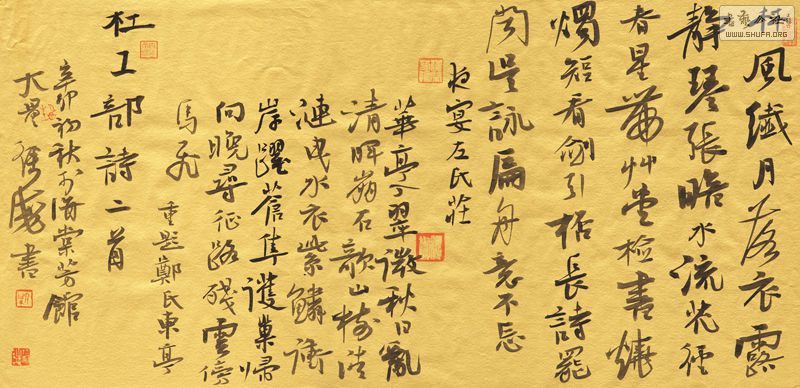 林風纖月落衣露
靜琴張暗水流花徑
春星帶艸堂檢書燒
燭短看劍引杯長詩罷
聞吳詠扁舟意不忘
夜宴左氏莊
華亭入翠微秋日亂
清暉崩石欹山樹清
漣曳水衣紫鱗衝
岸躍蒼隼護巢歸
向晚尋征路殘雲傍
馬飛
重題鄭氏東亭
杜工部詩二首
辛卯初秋於海棠芳館
書
WWW.SHUFA.ORG